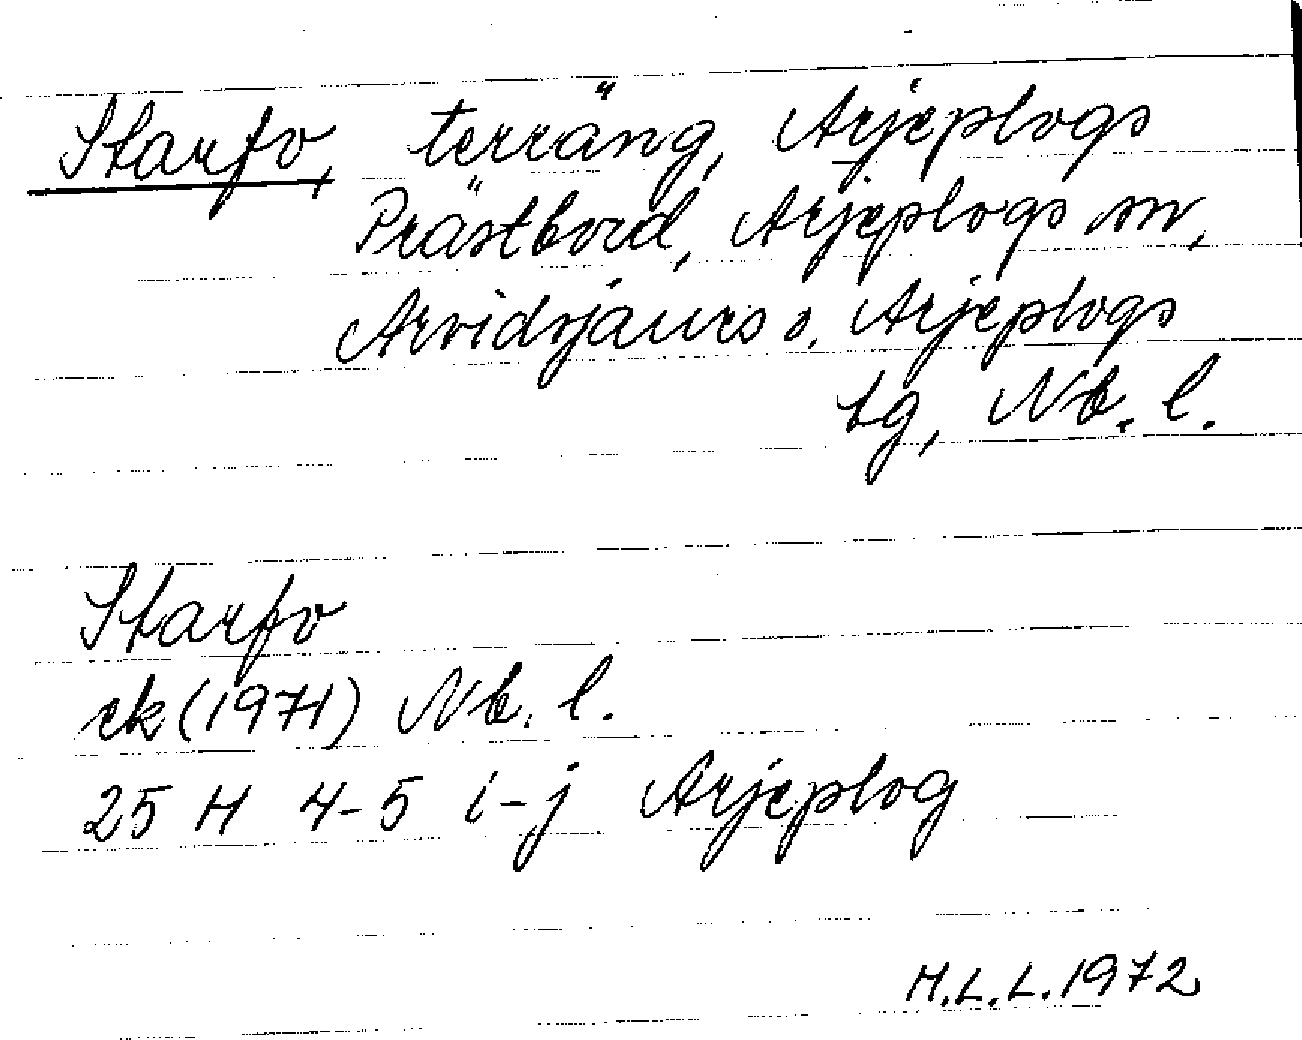 Starfo, terräng, Arjeplogs
Prästbord, Arjeplogs sn,
Arvidsjaurs o. Arjeplogs
tg, Nb. l.
Starfo
ek (1971) Nb. l.
25 H 4-5 i-j Arjeplog
H.L.L. 1972